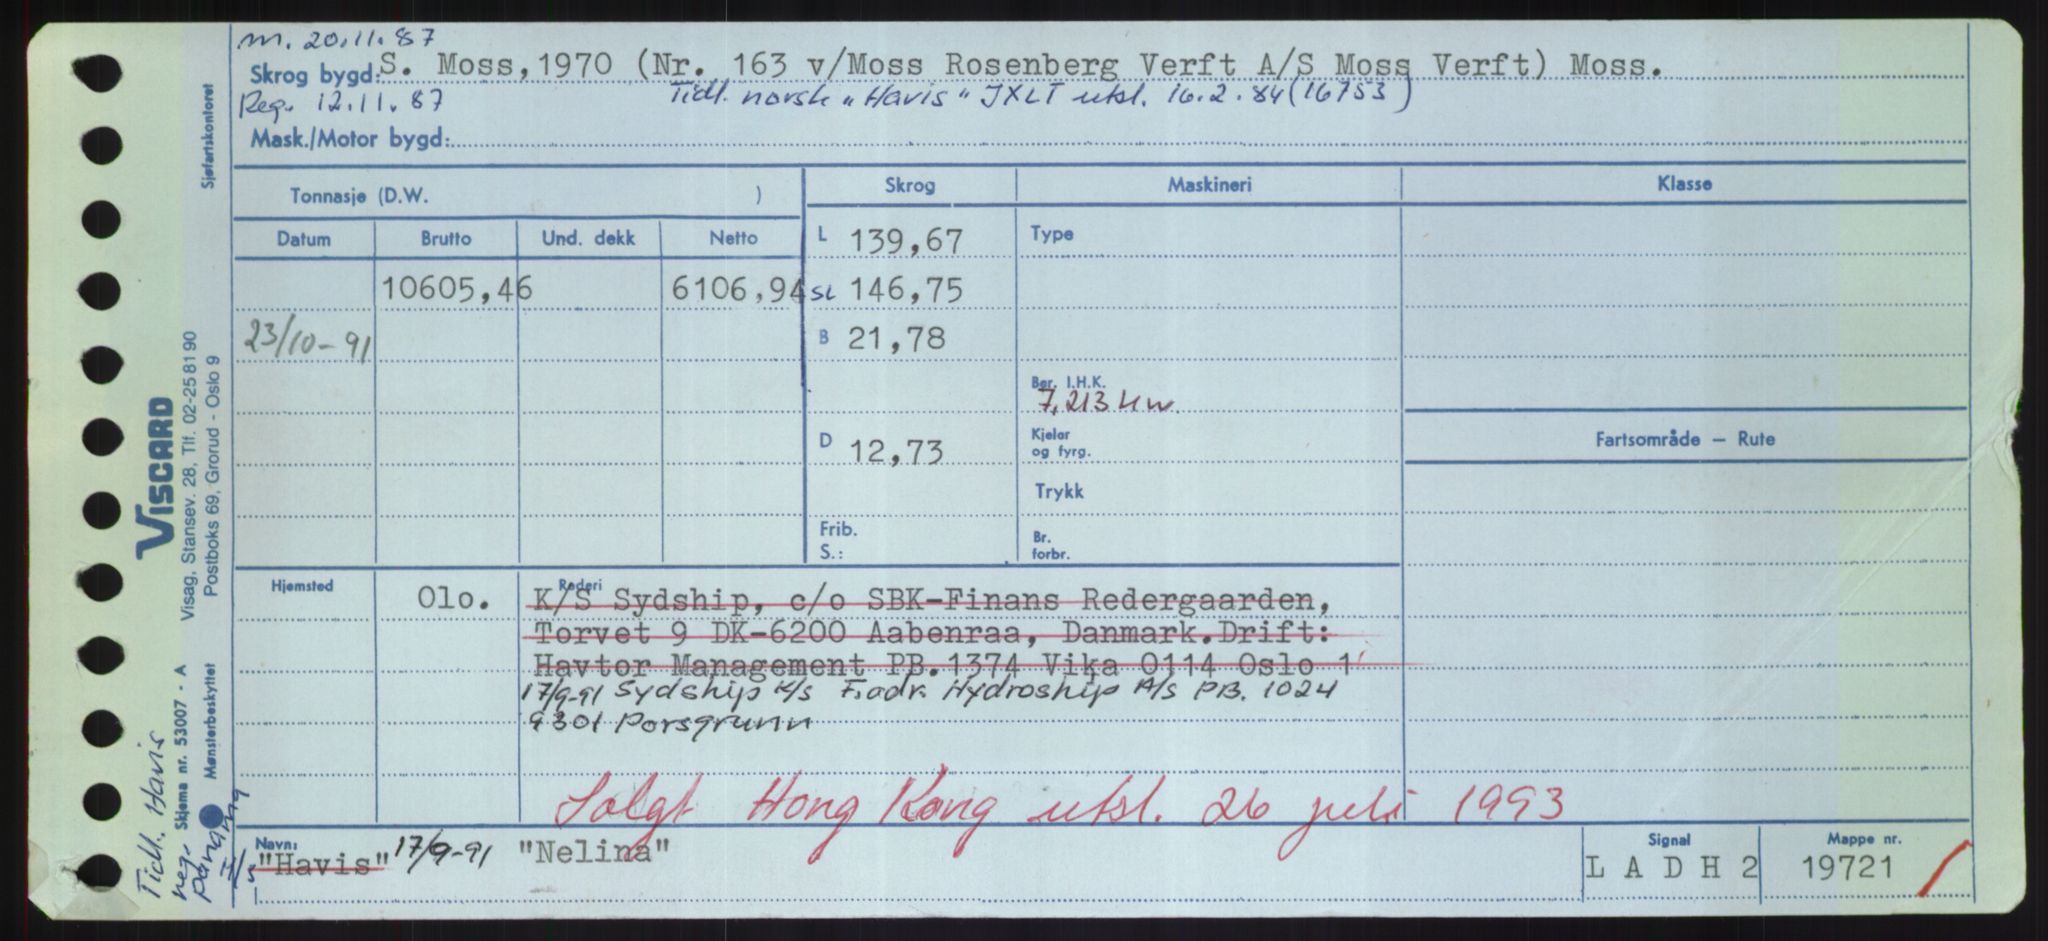 m. 20.11.87
Skrog bygd: S. Moss, 1970 (Nr. 163 v/Moss Rosenberg Verft A/S Moss Verft) Moss.
Reg. 12.11.87 Tidl. norsk "Havis" JXLT utsl. 16.2.84 (16753)
Mask./Motor bygd:
Tonnasje (D.W. )
Skrog Maskineri Klasse
Datum Brutto Und. dekk Netto
L 139,67 Type
10605,46 6106,94 SL 146,75
23/10-91 B 21,78
Ber. I.H.K.
7,213 kw
D 12,73 Kjeler
og fyrg.
Fartsområde – Rute
Trykk
Frib.
S.:
Br.
forbr.
Hjemsted Olo. Rederi
K/S Sydship, c/o SBK-Finans Redergaarden,
Torvet 9 DK-6200 Aabenraa, Danmark. Drift:
Havtor Management PB. 1374 Vika 0114 Oslo 1
17/9-91 Sydship K/S F.adr. Hydroship A/S PB. 1024
9301 Porsgrunn
Solgt Hong Kong utsl. 26 juli 1993
Navn: "Havis" 17/9-91 "Nelina"
Signal LADH2
Mappe nr. 19721
Sjøfartskontoret
VISCARD
Visag, Stansev. 28, Tlf. 02-25 81 90
Postboks 69, Grorud - Oslo 9
Skjema nr. 53007 - A
Mønsterbeskyttet
Tidl. Havis
reg.